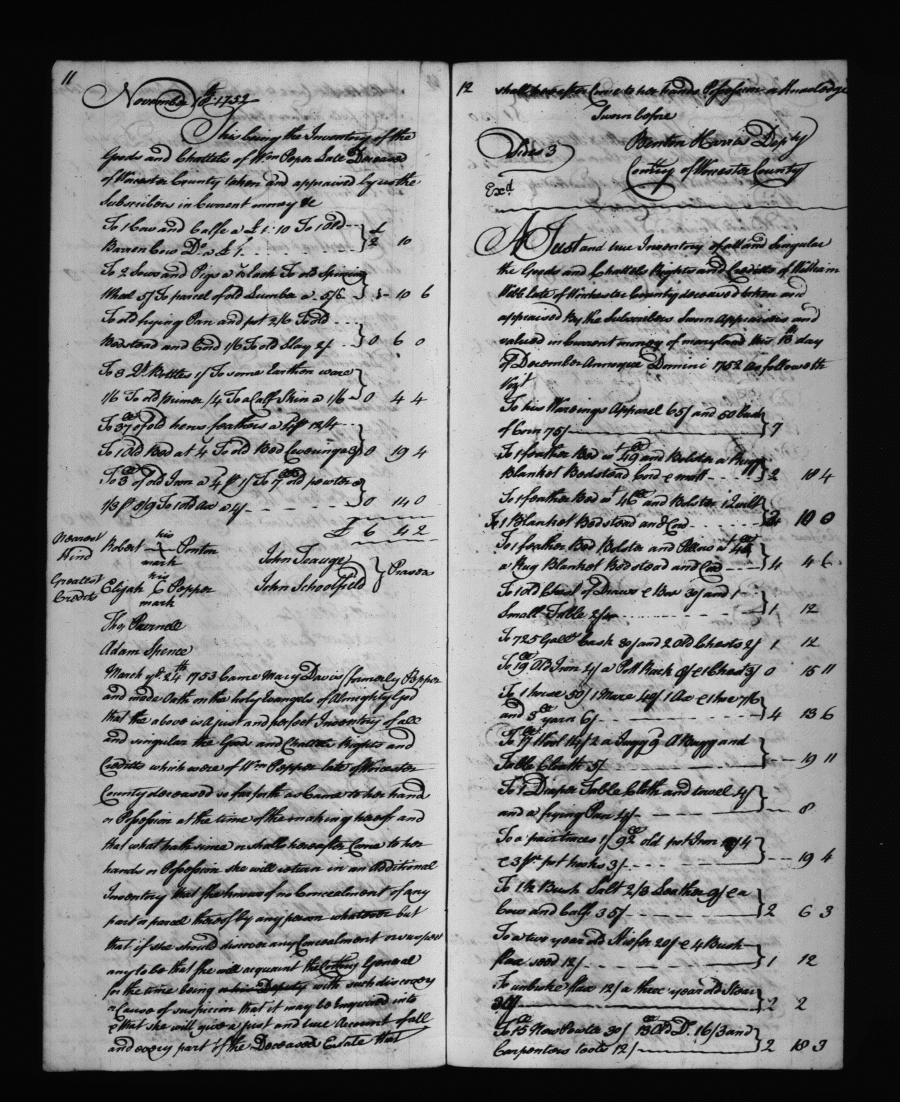 11
November 1752
This being the Inventory of the
Goods and Chattels of Wm Poper Late Deceased
of Worcester County taken and appraised by us the
Subscribers in Current money &c
To 1 Cow and Calfe a £1:10 To 1 old
Barren Cow Do a £1 £2 10
To 2 Sows and Pigs a To old Spining
Wheal 5/ To parcel of old Lumber a 5/6 1 10 6
To old frying Pan and pot 2/6 To old
Bedstead and Cord 1/6 To old Slay 2/ 0 6 0
To 3 Qt Bottles 1/ To some Earthen ware
1/6 To old primer /4 To a Calf Skin a 1/6 0 4 4
To 37 of old hens feathers a 12/4
To 1 old Bed at 4 To old Bed Covering 0 19 4
To 3 of old Iron a 4 To 7 old pewter
To 1 old Ax a 4/ 0 14 0
£ 6 4 2
Nearest Kind
Robert his mark Ponton
John Teauge
Greatest Credits
Elijah his mark Popper
John Schoolfield
Praisers
Thos Purnell
Adam Spence
March ye 24th 1753 Came Mary Davis (formerly Popper
and made Oath on the holy Evangels of Almighty God
that the above is a just and perfect Inventory of all
and singular the Goods and Chattels Rights and
Credits which were of Wm Popper late of Worcester
County deceased so far forth as Came to her hand
or Possession at the time of the making hereof and
that what hath since or shall hereafter Come to her
hands or Possession she will return in an Additional
Inventory that she knows of no Concealment of any
part or parcel thereof by any person whatever but
that if she should discover any Concealment or suspect
any to be that she will acquaint the Comsry General
for the time being or his Deputy with such discovery
or Cause of suspicion that it may be Enquired into
& that she will give a just and true Account of all
and every part of the Deceased Estate that
12
shall hereafter Come to her hands Possession or Knowledge
Sworn before
Benton Harris Depty
Comsry of Worcester County
Sides 3
Exd
A Just and true Inventory of all and Singular
the Goods and Chattels Rights and Credits of William
Webb late of Worchester County deceased taken and
appraised By the Subscribers Sworn Appraisers and
valued in Current money of maryland this 18th day
of December Annoque Domini 1752 as followeth
Vizt
To his Waringe Apparel 65/ and 50 bush
of Corn 75/ 7
To 1 feather Bed wt 49 and Bolster a Rugg
Blanket Bedstead Cord & matt 2 18 4
To 1 feather Bed wt 46 and Bolster 1 Quilt
1 Blanket Bedstead and Cord 2 10 0
To 1 feather Bed Bolster and Pillows wt
a Rug Blanket Bedstead and Cord 4 4 6
To 1 old Chest of Draws & Box 30/ and 1
Small Table 2/ 1 12
To 725 Gall Cask 30/ and 2 old Chests 2/ 1 12
To 19 Old Iron 2/ a Pott Rack 9/ & 1 Chest 3/ 0 15 11
To 1 horse 50/ 1 Mare 40/ 1 Axe & 1 hoe 7/6
and 3 yarn 6/ 4 13 6
To 17 Wool 14/ 2 a Jugg 9 A Bagg and
Table Cloath 5/ 19 11
To 1 Diaper Table Cloth and towel 4/
and a frying Pan 4/ 8
To a pair traces 1/ 92 old pot Iron
& 3 pr pot hooks 3/ 19 4
To 1½ Bush Salt 2/3 Leather 9/ & a
Cow and Calf 35/ 2 6 3
To a two year old Heifer 20/ & 4 Bush
flax seed 12/ 1 12
To unbroke flax 12/ a three year old Stear
30/ 2 2
To 15 New Pewter 30/ 13 Old Do. 16/3 and
Carpenters tools 12/ 2 18 3